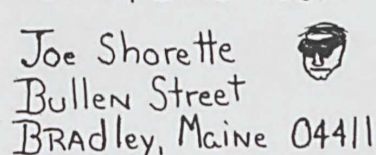 Joe Shorette
Bullen Street
BRAdley, MaiNe 04411